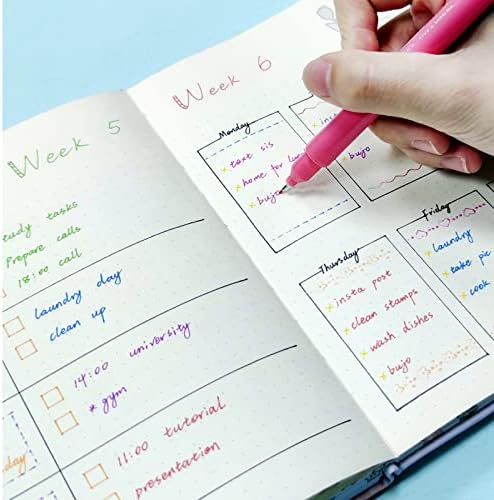 Week 5
study tasks
Prepare calls
18:00 call
laundry day
clean up
14:00 university
* gym
11:00 tutorial
presentation
Week 6
Monday
text sis
home for
bujo
bujo
Thursday
insta post
clean stamps
wash dishes
bujo
Friday
laundry
take pic
cook